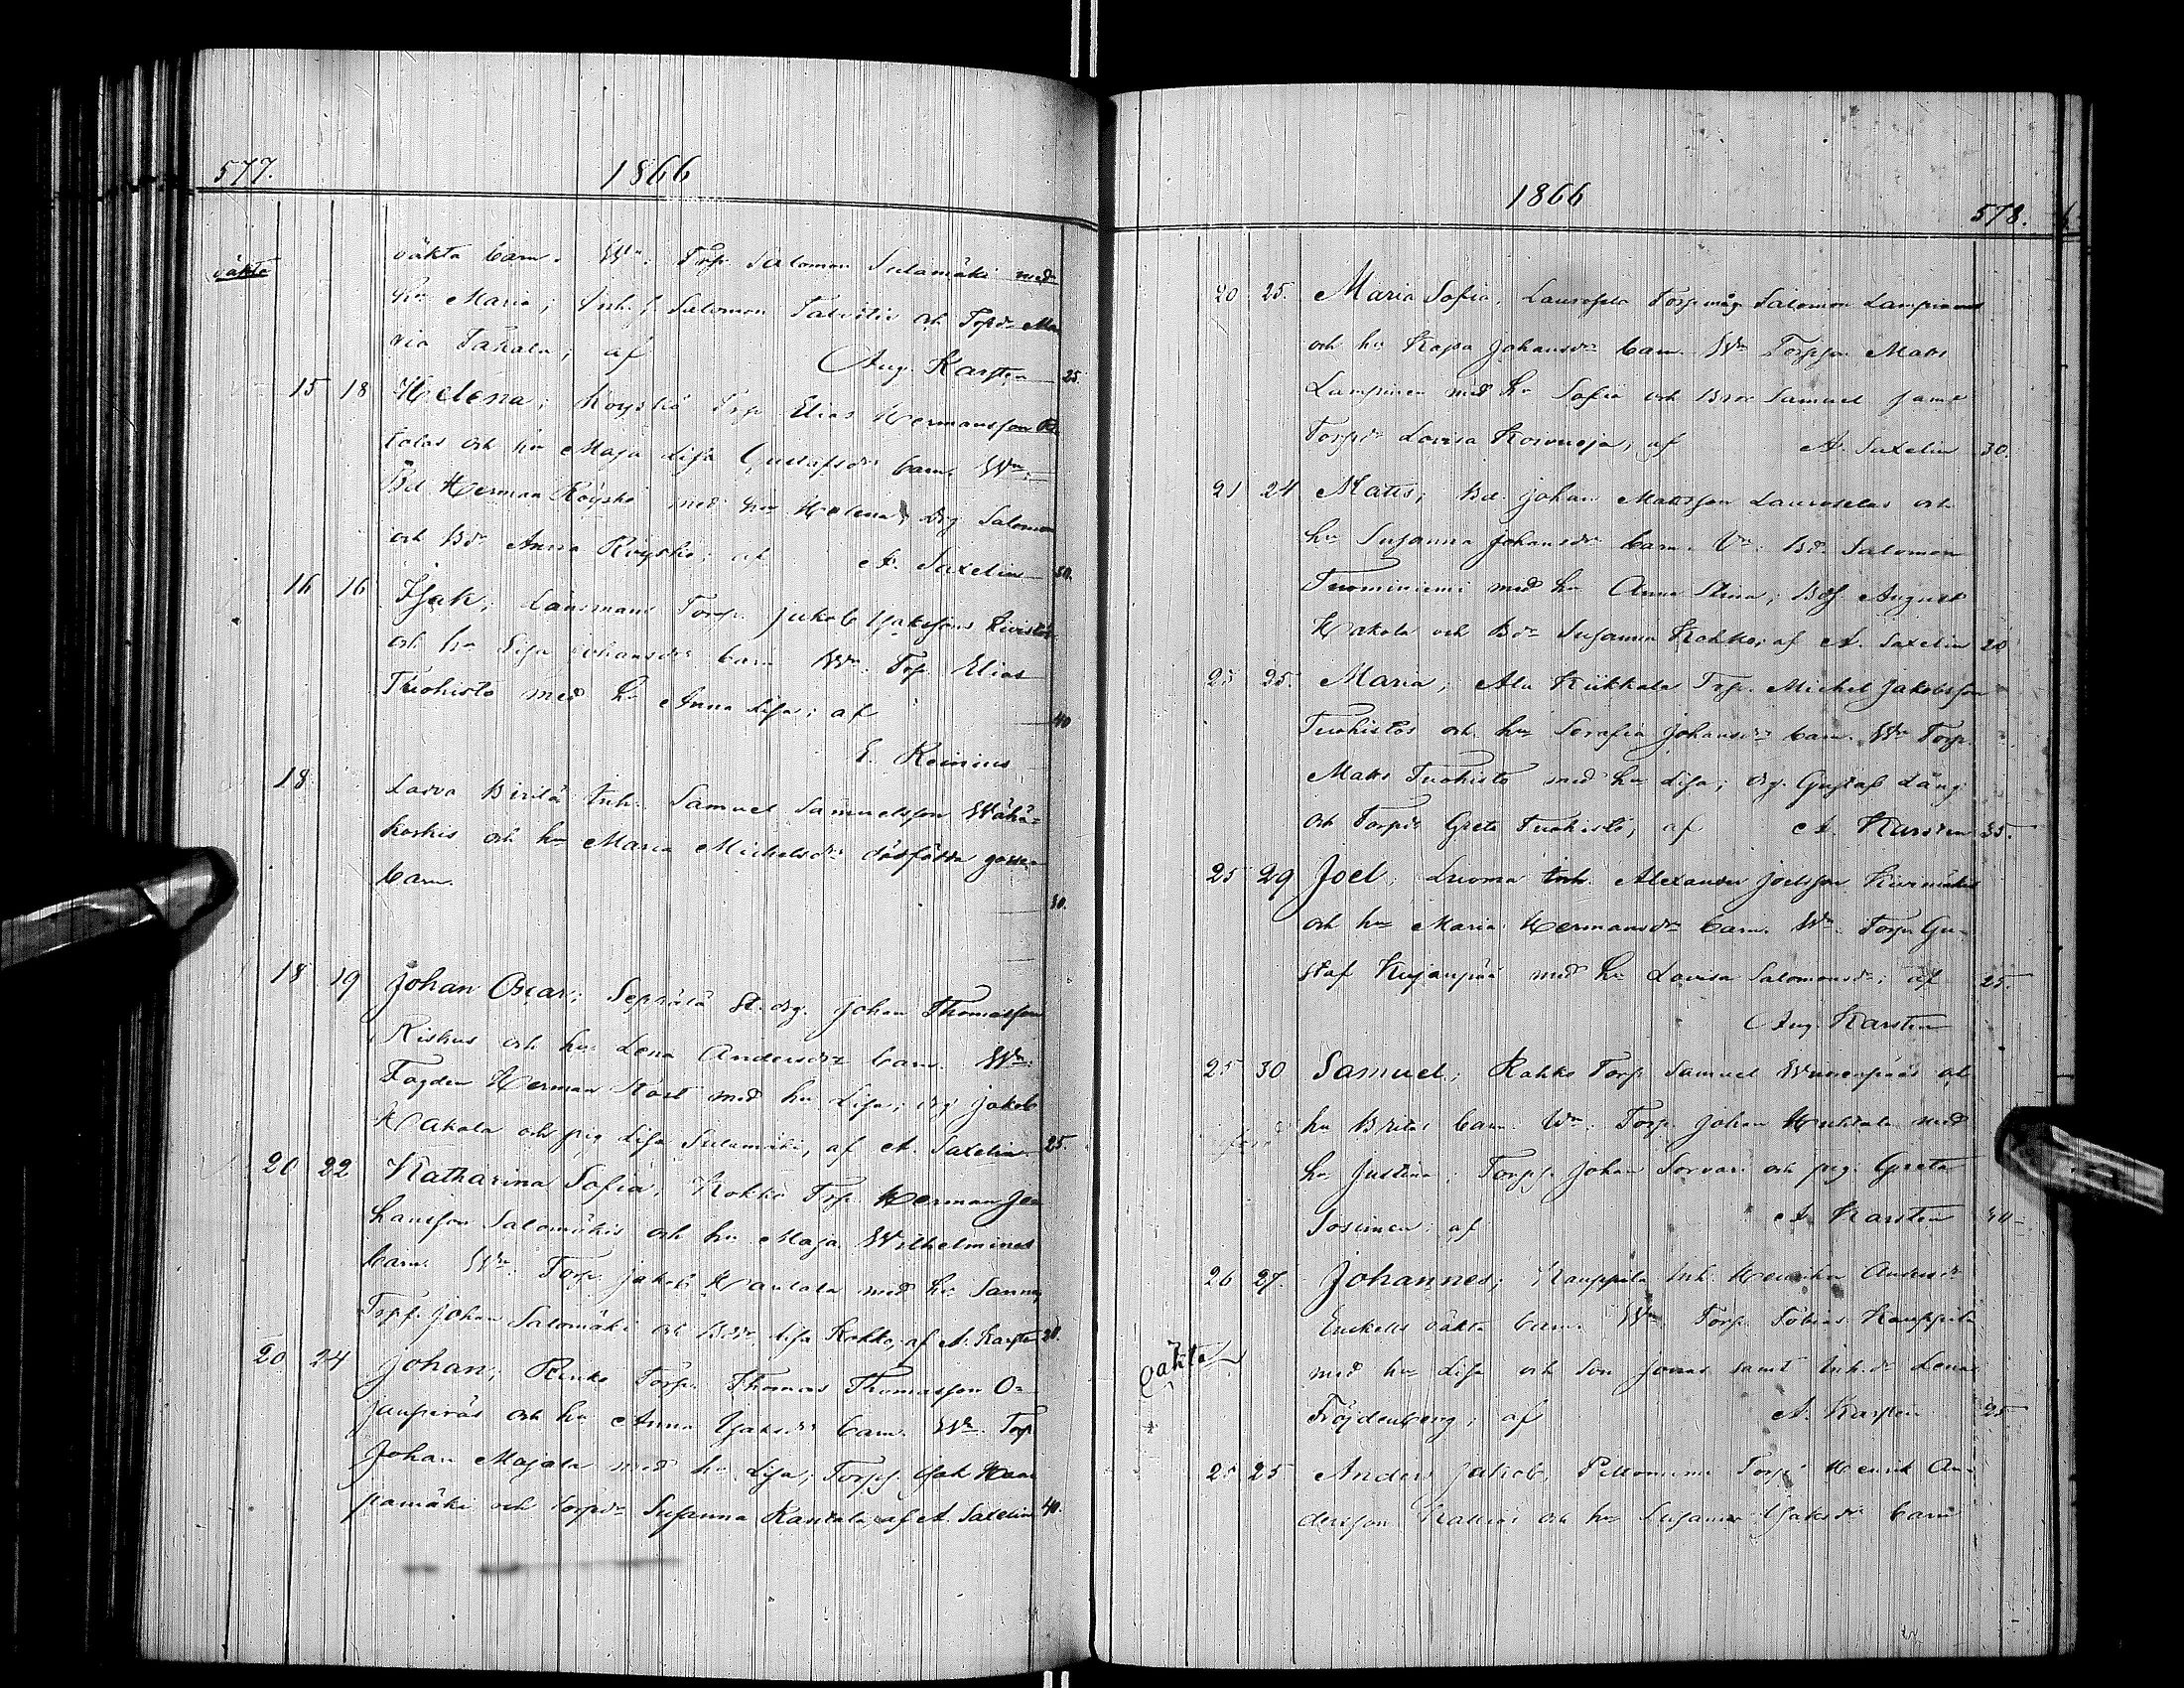 577.
1866
oäkta
oäkta barn. Wn. Torp. Salomon Sulamäki med
hu Maria; Inh. Salomon Talvitie och Torpdr Ma
ria Takala; af Aug. Karsten 25.
15 18 Helena; Köyskö Torp. Elias Hermansson
tolas och hu Maja Lisa Gustafsdr barn. Wn.
Bd. Herman Röyskö med hu Helena, Drg Salomon
och Bdr Anna Röyskö; af A. Saxelin 30.
16 16 Isak; Länsmans Torp. Jakob Isakssons Kivistös
och hu Lisa Johansdrs barn Wn. Torp. Elias
Tuohisto med h. Anna Lisa; af 40
E. Reinius
18 Lasva Birilä Inh. Samuel Samuelsson Wähä-
koskis och hu Maria Michelsdrs dödfödda gosse
barn. 30.
18 19 Johan Oscar; Seppälä St. drg. Johan Thomasson
Riskus och hu Lena Andersdrs barn. Wn.
Fogden Herman Köst med hu Lisa; drg Jakob
Hakola och pig Lisa Sulamäki, af A. Saxelin 25.
20 22 Katharina Sofia; Kokko Torp. Herman Jo-
hansson Salomäkis och hu Maja Wilhelminas
barn. Wn. Torp. Jakob Hautala med hu Sanna,
Torps. Johan Salomäki och Bdr Lisa Kokko, af A. Karsten 20.
20 24 Johan; Rinko Torp. Thomas Thomasson O-
janperäs och hu Anna Isaksdrs barn. Wn. Torp
Johan Majala med hu Lisa; Torps. Isak Haa
pamäki och torpdr Susanna Rantala, af A. Saxelin 40.
1866
578.
20 25. Maria Sofia, Laurosela Torp.måg Salomon Lampinens
och hu Kajsa Johansdrs barn. Wn Torpson Matts
Lampinen med hu Sofia och Bror Samuel samt
Torpdr Lovisa Koivuoja, af A. Saxelin 30.
21 24 Matts; Bd. Johan Mattsson Lauroselas och
hu Susanna Johansdrs barn. Wn. Bd. Salomon
Tuominiemi med hu Anna Stina; Bds. August
Hakola och Bdr Susanna Kokko; af A. Saxelin 20
25 25. Maria; Ala Kiikkala Torp. Michel Jakobsson
Tuohistos och hu Serafia Johansdrs barn. Wn Torp.
Matts Tuohisto med hu Lisa; drg. Gustaf Lång
och Torpdr Greta Tuohisto, af A. Karsten 35.
25 29 Joel; Luoma Inh. Alexander Joelsson Kivimäkis
och hu Maria Hermansdrs barn. Wn. Torp. Gu-
staf Kujanpää med hu Lovisa Salomonsdr; af 25.
Aug. Karsten
25 30 Samuel; Kokko Torp. Samuel Wuorenpääs och
hu Britas barn. Wn. Torp. Johan Huhtala med
hu Justina; Torps. Johan Sorvari och pig. Greta
Tosimen; af A. Karsten 30
26 27. Johannes; Kauppila Inh. Henrika Andersdr
Enckells oäkta barn. Wn Torp. Tobias Kauppila
oäkta
med hu Lisa och Son Jonas samt Inh.dr Lena
Fröjdenberg; af A. Karsten 25
25 Anders Jakob, Peltoniemi Torp. Henrik An-
dersson och hu Susanna Isaksdrs barn